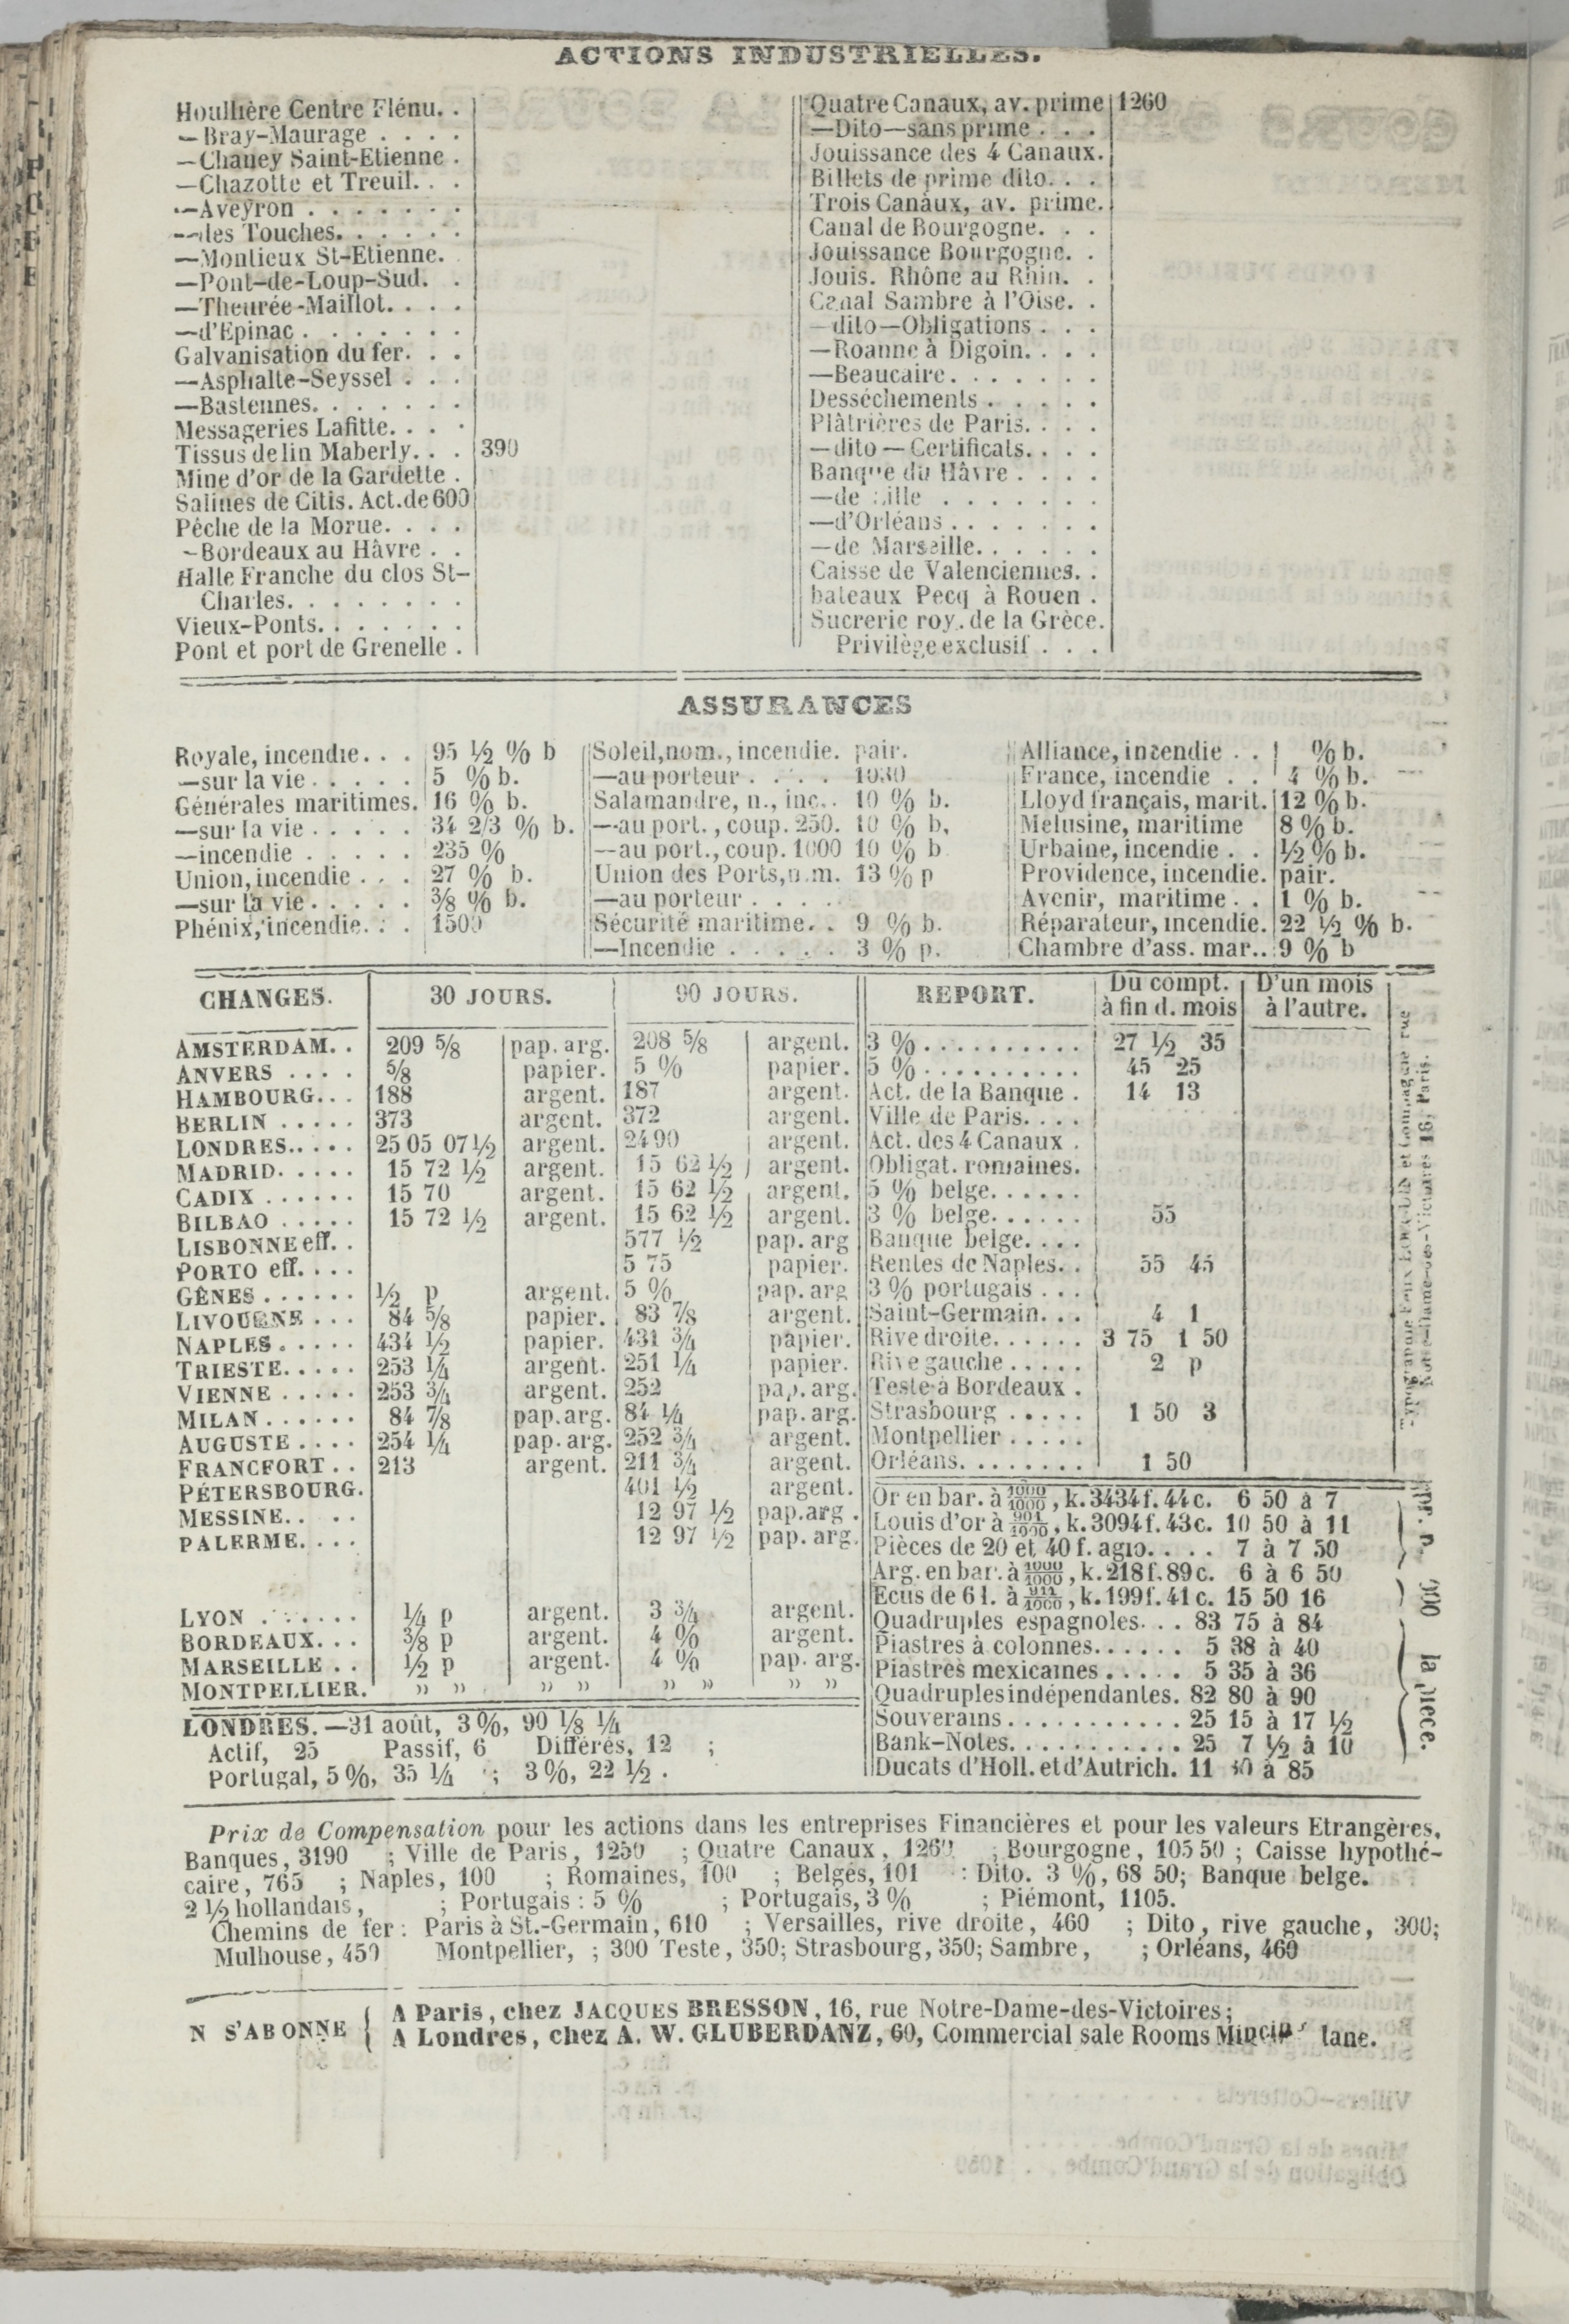 ACTIONS INDUSTRIELLES.
Houllière Centre Flénu. .
— Bray-Maurage . . . .
—Chaney Saint-Etienne .
—Chazotte et Treuil. . .
—Aveyron . . . . . . .
—des Touches. . . . . .
—Montieux St-Etienne.
—Pont-de-Loup-Sud. .
—Theurée-Maillot. . . .
—d'Epinac . . . . . . .
Galvanisation du fer. . .
—Asphalte-Seyssel . . .
—Bastennes. . . . . . .
Messageries Lafitte. . . .
Tissus de lin Maberly. . . 390
Mine d'or de la Gardette .
Salines de Citis. Act. de 600
Pêche de la Morue. . . .
—Bordeaux au Hâvre . .
Halle Franche du clos St-
Charles. . . . . . . .
Vieux-Ponts. . . . . . .
Pont et port de Grenelle .
Quatre Canaux, av. prime 1260
—Dito—sans prime . . .
Jouissance des 4 Canaux.
Billets de prime dito. . .
Trois Canaux, av. prime.
Canal de Bourgogne. . .
Jouissance Bourgogne. .
Jouis. Rhône au Rhin. .
Canal Sambre à l'Oise. .
—dito—Obligations . . .
—Roanne à Digoin. . . .
—Beaucaire. . . . . . .
Desséchements . . . . .
Plâtrières de Paris. . . .
—dito — Certificats. . . .
Banque du Hâvre . . . .
—de Lille . . . . . . .
—d'Orléans . . . . . . .
—de Marseille. . . . . .
Caisse de Valenciennes. .
bateaux Pecq à Rouen .
Sucrerie roy. de la Grèce.
Privilège exclusif . . .
ASSURANCES
Royale, incendie. . . 95 ½ % b
—sur la vie . . . . . 5 % b.
Générales maritimes. 16 % b.
—sur la vie . . . . . 34 2/3 % b.
—incendie . . . . . 235 %
Union, incendie . . . 27 % b.
—sur la vie . . . . . ⅜ % b.
Phénix, incendie. . . 1500
Soleil, nom., incendie. pair.
—au porteur . . . . 1030
Salamandre, n., inc.. 10 % b.
—au port., coup. 250. 10 % b.
—au port., coup. 1000 10 % b
Union des Ports, n.m. 13 % p
—au porteur . . . .
Sécurité maritime. . 9 % b.
—Incendie . . . . . 3 % p.
Alliance, incendie . . % b.
France, incendie . . 4 % b.
Lloyd français, marit. 12 % b.
Melusine, maritime 8 % b.
Urbaine, incendie . . ½ % b.
Providence, incendie. pair.
Avenir, maritime . . 1 % b.
Réparateur, incendie. 22 ½ % b.
Chambre d'ass. mar.. 9 % b
CHANGES. 30 JOURS. 90 JOURS.
AMSTERDAM. . 209 ⅝ pap. arg. 208 ⅝ argent.
ANVERS . . . . ⅝ papier. 5 % papier.
HAMBOURG. . . 188 argent. 187 argent.
BERLIN . . . . . 373 argent. 372 argent.
LONDRES. . . . . 25 05 07 ½ argent. 24 90 argent.
MADRID. . . . . 15 72 ½ argent. 15 62 ½ argent.
CADIX . . . . . . 15 70 argent. 15 62 ½ argent.
BILBAO . . . . . 15 72 ½ argent. 15 62 ½ argent.
LISBONNE eff. . 577 ½ pap. arg
PORTO eff. . . . 5 75 papier.
GÊNES . . . . . . ½ p argent. 5 % pap. arg
LIVOURNE . . . 84 ⅝ papier. 83 ⅞ argent.
NAPLES . . . . . 434 ½ papier. 431 ¾ papier.
TRIESTE. . . . . 253 ¼ argent. 251 ¼ papier.
VIENNE . . . . . 253 ¾ argent. 252 pap. arg.
MILAN . . . . . . 84 ⅞ pap. arg. 84 ¼ pap. arg.
AUGUSTE . . . . 254 ¼ pap. arg. 252 ¾ argent.
FRANCFORT . . 213 argent. 211 ¾ argent.
PÉTERSBOURG. 401 ½ argent.
MESSINE. . . . 12 97 ½ pap. arg .
PALERME. . . . 12 97 ½ pap. arg.
LYON . . . . . . ¼ p argent. 3 ¾ argent.
BORDEAUX. . . ⅜ p argent. 4 % argent.
MARSEILLE . . ½ p argent. 4 % pap. arg.
MONTPELLIER. » » » » » » » »
LONDRES. —31 août, 3 %, 90 ⅛ ¼
Actif, 25 Passif, 6 Différés, 12 ;
Portugal, 5 %, 35 ¼ ; 3 %, 22 ½ .
REPORT. Du compt. à fin d. mois D'un mois à l'autre.
3 % . . . . . . . . . . 27 ½ 35
5 % . . . . . . . . . . 45 25
Act. de la Banque . 14 13
Ville de Paris. . . .
Act. des 4 Canaux .
Obligat. romaines.
5 % belge. . . . . .
3 % belge. . . . . . 55
Banque belge. . . .
Rentes de Naples. . 55 45
3 % portugais . . .
Saint-Germain. . . 4 1
Rive droite. . . . . . 3 75 1 50
Rive gauche . . . . . 2 p
Teste à Bordeaux .
Strasbourg . . . . . 1 50 3
Montpellier . . . . .
Orléans. . . . . . . . 1 50
Or en bar. à 1000/1000, k. 3434 f. 44 c. 6 50 à 7
Louis d'or à 901/1000, k. 3094 f. 43 c. 10 50 à 11
Pièces de 20 et 40 f. agio. . . . 7 à 7 50
Arg. en bar. à 1000/1000, k. 218 f. 89 c. 6 à 6 50
Ecus de 6 l. à 911/1000, k. 199 f. 41 c. 15 50 16
Quadruples espagnoles. . . 83 75 à 84
Piastres à colonnes. . . . . . 5 38 à 40
Piastres mexicaines . . . . . 5 35 à 36
Quadruples indépendantes. 82 80 à 90
Souverains . . . . . . . . . . . 25 15 à 17 ½
Bank-Notes. . . . . . . . . . . 25 7 ½ à 10
Ducats d'Holl. et d'Autrich. 11 à 85
la pièce.
16, Paris.
Prix de Compensation pour les actions dans les entreprises Financières et pour les valeurs Etrangères.
Banques, 3190 ; Ville de Paris, 1250 ; Quatre Canaux, 1260 ; Bourgogne, 105 50 ; Caisse hypothé-
caire, 765 ; Naples, 100 ; Romaines, 100 ; Belges, 101 : Dito. 3 %, 68 50; Banque belge.
2 ½ hollandais, ; Portugais : 5 % ; Portugais, 3 % ; Piémont, 1105.
Chemins de fer : Paris à St.-Germain, 610 ; Versailles, rive droite, 460 ; Dito, rive gauche, 300;
Mulhouse, 450 Montpellier, ; 300 Teste, 350; Strasbourg, 350; Sambre, ; Orléans, 460
N S'ABONNE
A Paris, chez JACQUES BRESSON, 16, rue Notre-Dame-des-Victoires;
A Londres, chez A. W. GLUBERDANZ, 60, Commercial sale Rooms lane.